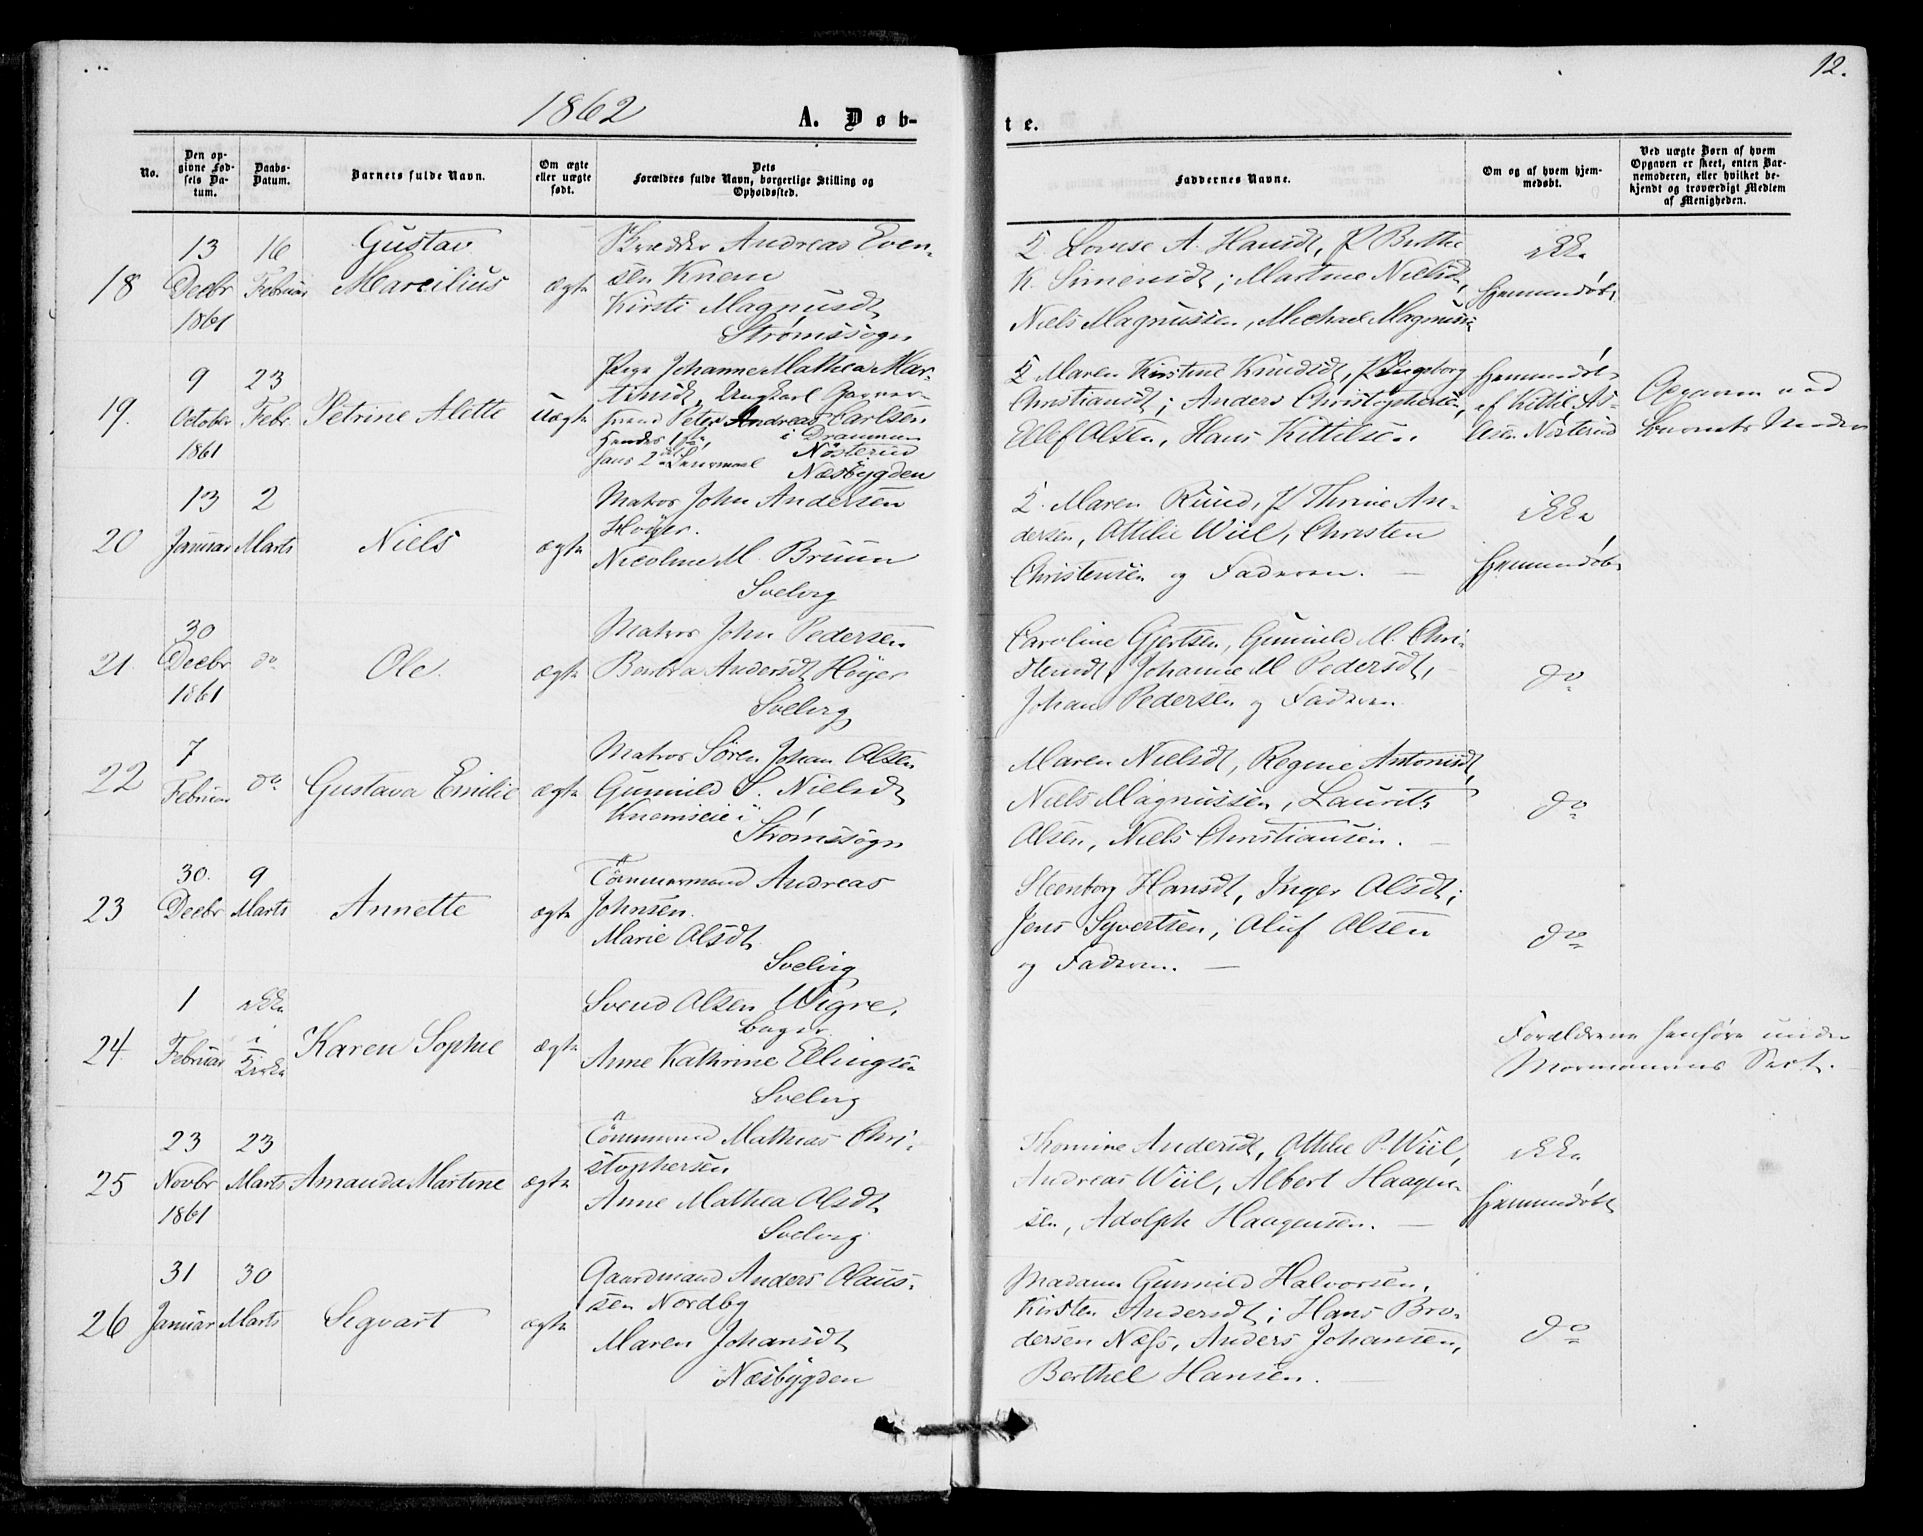 12.
1862
A. Døb-
te.
No.
Den op-
givne Fød-
sels Da-
tum.
Daabs-
Datum.
Barnets fulde Navn.
Om ægte
eller uægte
født.
Dets
Forældres fulde Navn, borgerlige Stilling og
Opholdssted.
Faddernes Navne.
Om og af hvem hjem-
medøbt.
Ved uægte Børn af hvem
Opgaven er skeet, enten Bar-
nemoderen, eller hvilket be-
kjendt og troværdigt Medlem
af Menigheden.
18
13
Decbr
1861
16
Februar
Gustav
Marcilius
ægte
Andreas Even-
sen Knem
Kirsti Magnusdt
Strømssogn
Q. Lovise A. Hansdt, P. Berthe
K. Simensdt; Martine Nielsdt,
Niels Magnussen, Michael Magnuss:
ikke
hjemmedøbt
19.
9
October
1861
23
Febr.
Petrine Alette
uægte
Pige Johanne Mathea Mar-
tinsdt, Ungkarl Garver-
svend Peter Andreas Carlsen
hendes 1ste, i Drammen
hans 2det Leiermaal Nøsterud
Næsbygden
Q Maren Kirstine Knudsdt, P. Ingeborg
Christiansdt; Anders Christophersen,
Ellef Olsen, Hans Kittilsen
hjemmedøbt
af Kittil As-
lesen Nøsterud
Opgaven ved
Barnets Moder
20
13
Januar
2
Marts
Niels
ægte
Matros John Andersen
Høyer.
Nicoline M. Bruun
Svelvig
Q. Maren Ruud, P Thrine An-
dersen, Ottilie Wiil, Christen
Christensen og Faderen. —
ikke
hjemmedøbt
21.
30
Decbr
1861
do
Ole.
ægte
Matros John Pedersen
Barbra Andersdt Høyer
Svelvig
Caroline Gjertsen, Gunnild M. Chri-
stensdt, Johanne M Pedersdt,
Johan Pedersen og Faderen
do
22
7
Februar
do
Gustava Emilie
ægte
Matros Søren Johan Olsen
Gunnild S. Nielsdt
Knemseie i
Strømssogn
Maren Nielsdt, Regine Antonsdt,
Niels Magnussen, Laurits
Olsen, Niels Christiansen. —
do
23
30.
Decbr
9
Marts
Annette
ægte
Tømmermand Andreas
Johnsen.
Marie Olsdt
Svelvig
Steenborg Hansdt, Inger Olsdt;
Jens Syvertsen, Oluf Olsen
og Faderen. —
do
24.
1
Februar
ikke
i
Kirke
Karen Sophie
ægte
Svend Olsen Wigre,
Bager
Anne Kathrine Ellingsen
Svelvig
Forældrene henhøre under
Mormonernes Sect.
25
23
Novbr
1861
23
Marts
Amanda Martine
ægte
Tømmermand Mathias Chri-
stophersen
Anne Mathea Olsdt
Svelvig
Thomine Andersdt, Ottilie P. Wiil,
Andreas Wiil, Albert Haagen-
sen, Adolph Haagensen. —
ikke
hjemmedøbt
26
31
Januar
30
Marts
Segvart
ægte
Gaardmand Anders Olaus-
sen Nordby
Maren Johansdt
Næsbygden
Madam Gunnild Halvorsen,
Kirsten Andersdt; Hans Bro-
dersen Næss, Anders Johansen,
Berthel Hansen. —
do